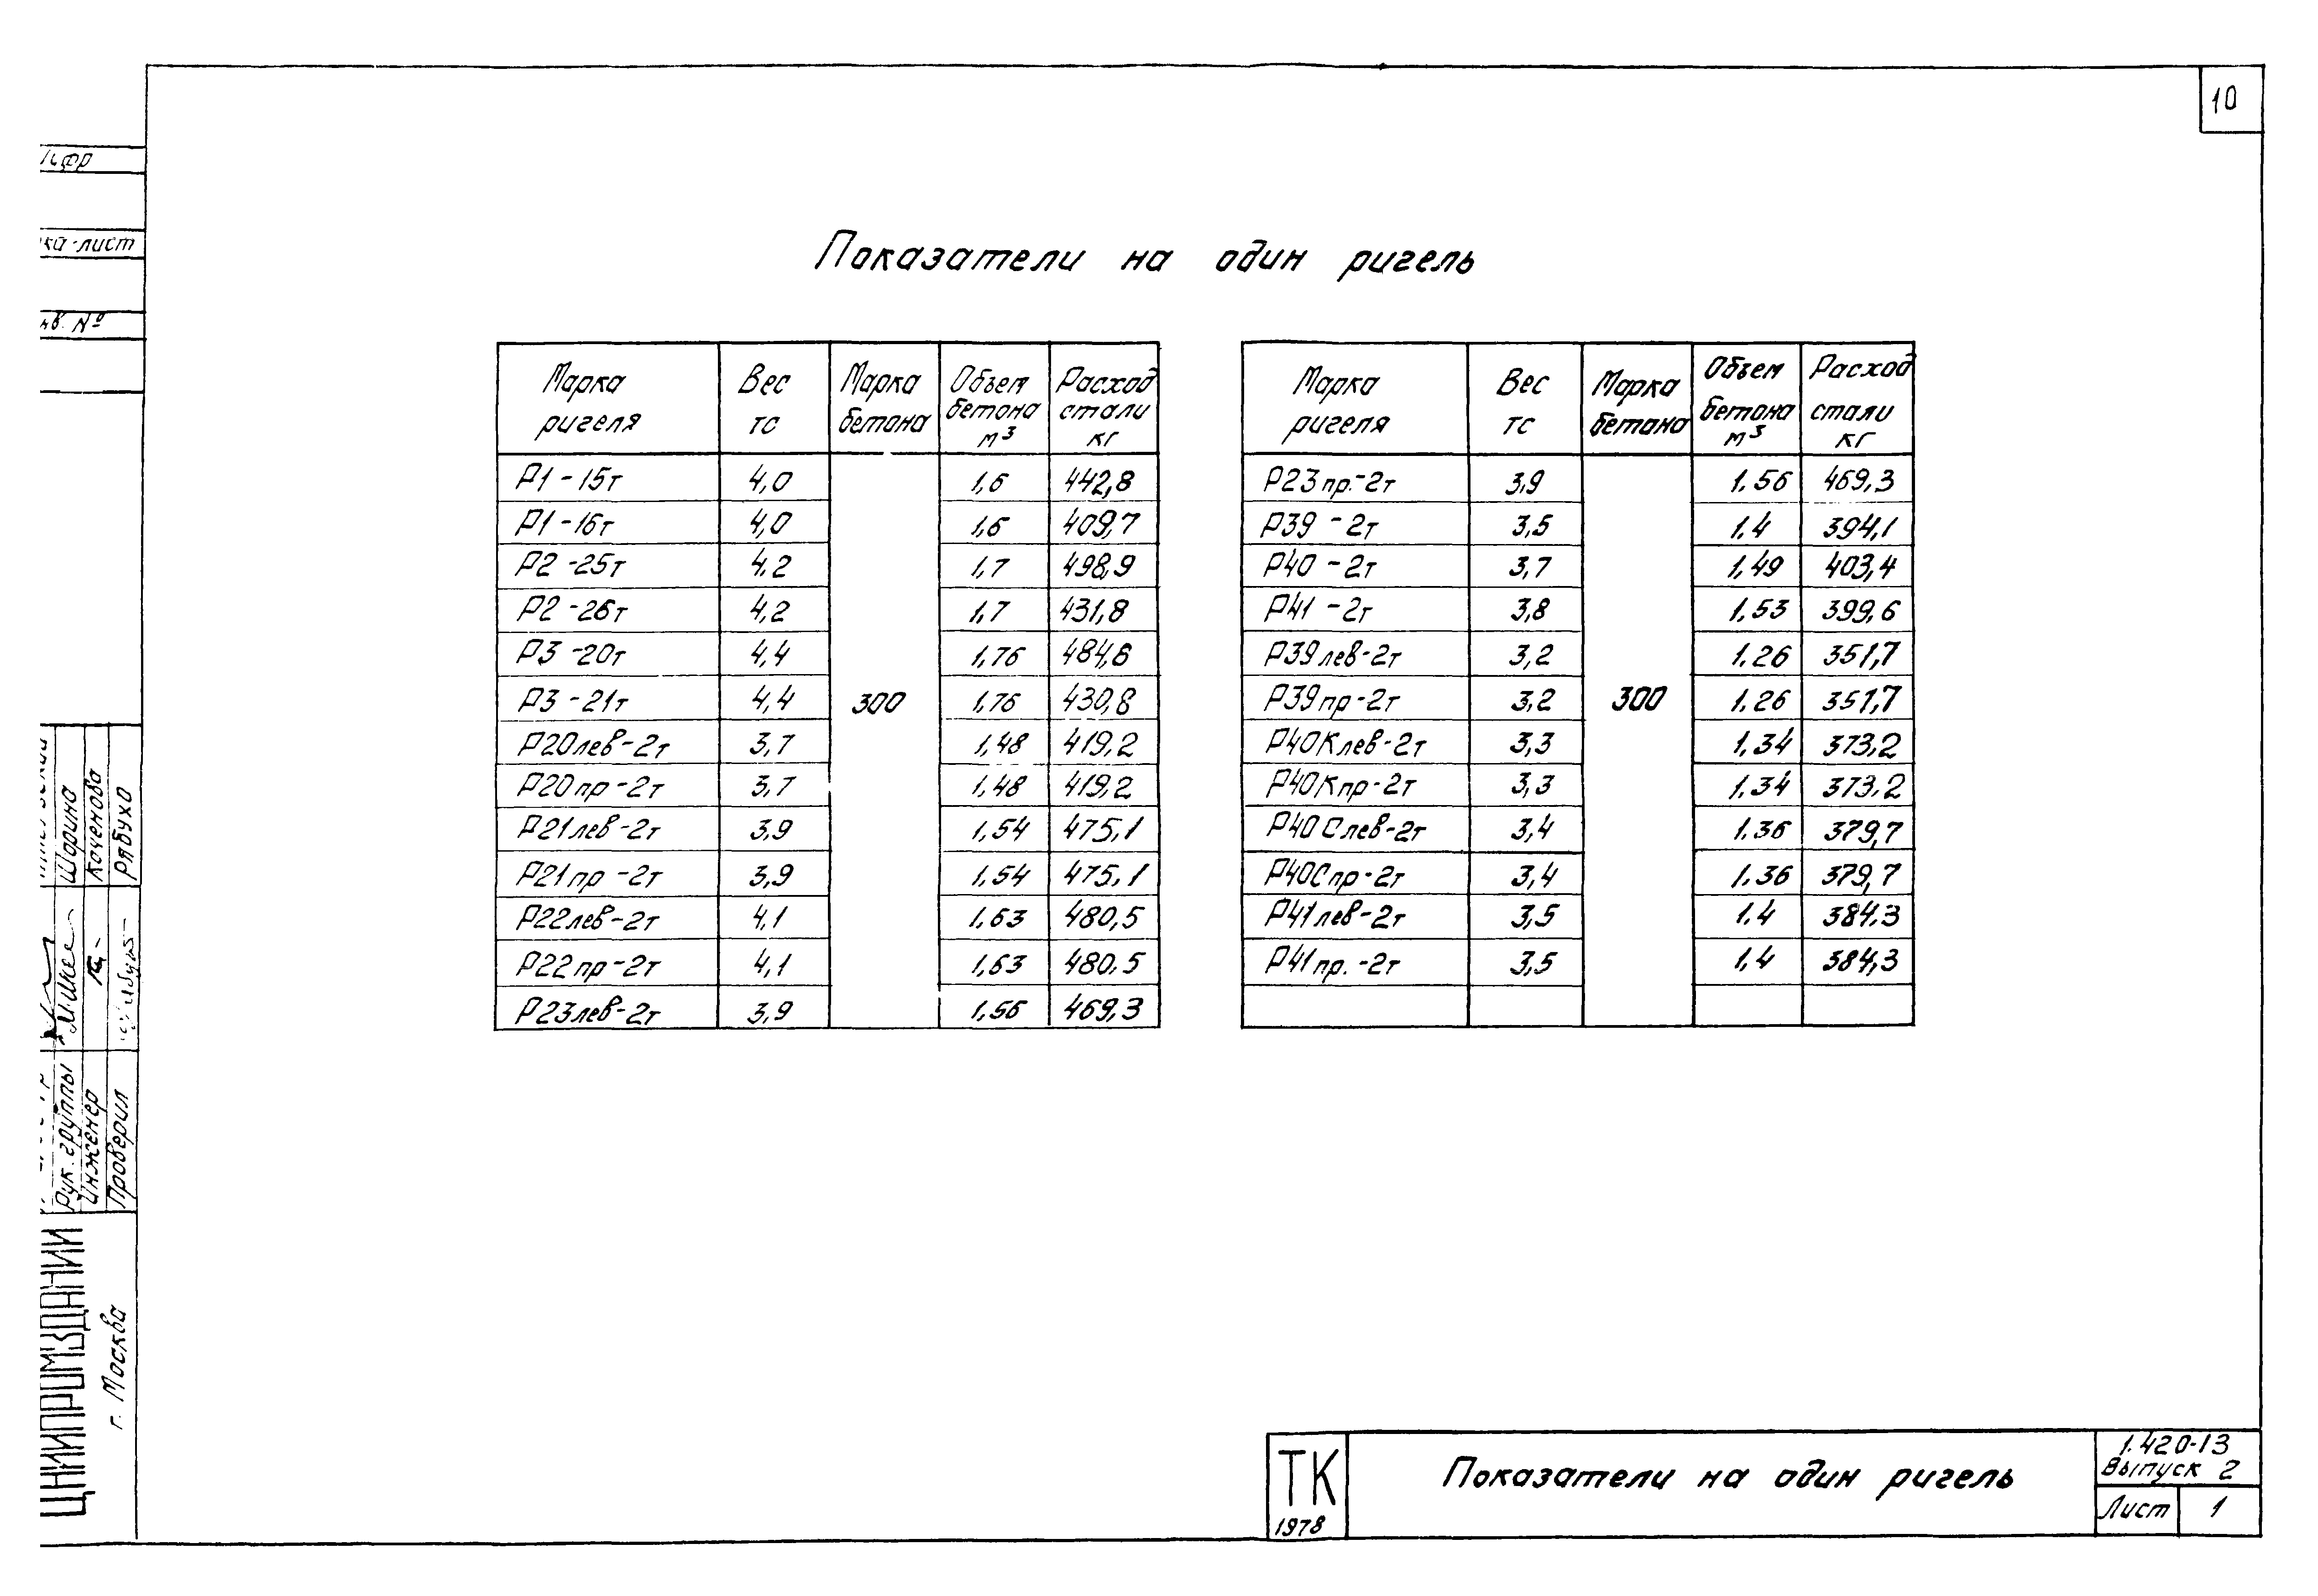 10
Показатели на один ригель
Марка ригеля Вес тс Марка бетона Объем бетона м³ Расход стали кг
Р1-15т 4,0 300 1,6 442,8
Р1-16т 4,0 1,6 409,7
Р2-25т 4,2 1,7 498,9
Р2-26т 4,2 1,7 431,8
Р3-20т 4,4 1,76 484,6
Р3-21т 4,4 1,76 430,8
Р20лев-2т 3,7 1,48 419,2
Р20пр-2т 3,7 1,48 419,2
Р21лев-2т 3,9 1,54 475,1
Р21пр-2т 3,9 1,54 475,1
Р22лев-2т 4,1 1,63 480,5
Р22пр-2т 4,1 1,63 480,5
Р23лев-2т 3,9 1,56 469,3
Марка ригеля Вес тс Марка бетона Объем бетона м³ Расход стали кг
Р23пр.-2т 3,9 300 1.56 469,3
Р39-2т 3,5 1.4 394,1
Р40-2т 3,7 1.49 403,4
Р41-2т 3,8 1.53 399,6
Р39лев-2т 3,2 1.26 351,7
Р39пр-2т 3,2 1.26 351,7
Р40Клев-2т 3,3 1.34 373,2
Р40Кпр-2т 3,3 1.34 373,2
Р40Слев-2т 3,4 1.36 379,7
Р40Спр-2т 3,4 1.36 379,7
Р41лев-2т 3,5 1.4 384,3
Р41пр.-2т 3,5 1.4 384,3
ТК
1978
Показатели на один ригель
1.420-13
Выпуск 2
Лист 1
ЦНИИПРОМЗДАНИЙ
г. Москва
Рук. группы Шорина
Инженер Коченова
Проверил Рябуха